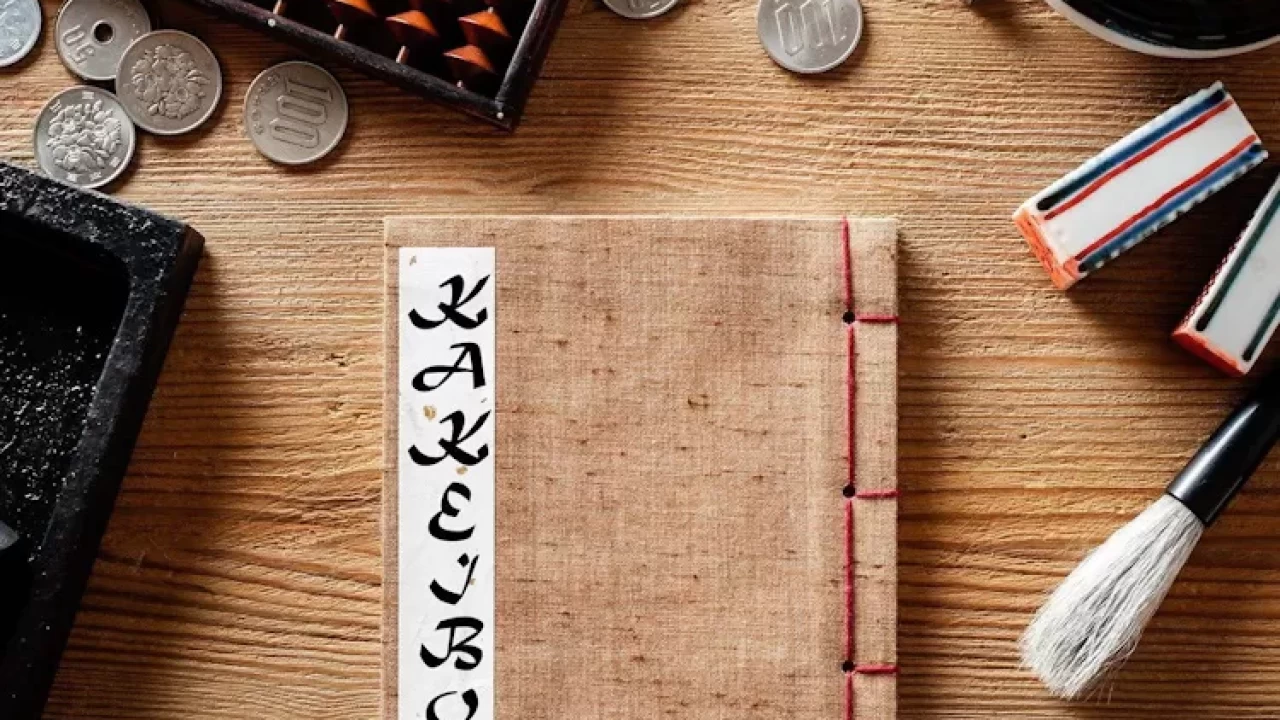 50
100
100
KAKEIBO